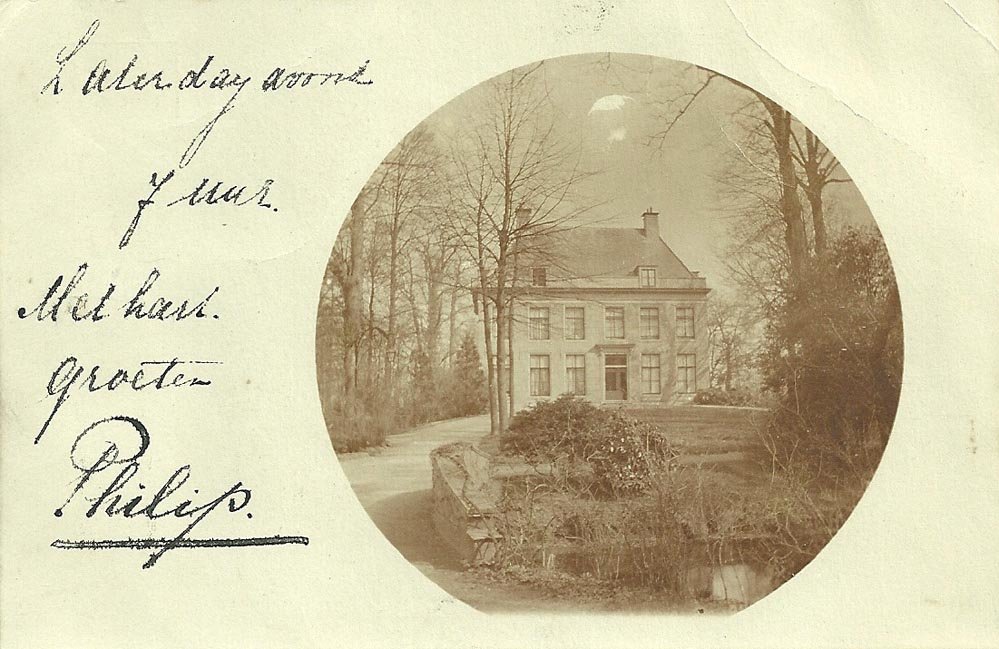 Zaterday avond
7 uur.
Met hart.
groeten
Philip.